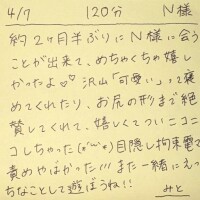 4/7 120分 N様
約2ヶ月半ぶりにN様に会う
ことが出来て、めちゃくちゃ嬉し
かったよ♡♡ 沢山「可愛い」って褒
めてくれたり、お尻の形まで絶
賛してくれて、嬉しくてついニコニ
コしちゃった(*´ω`*) 目隠し拘束電マ
責めやばかった!!! また一緒にえっ
ちなことして遊ぼうね!!
みと